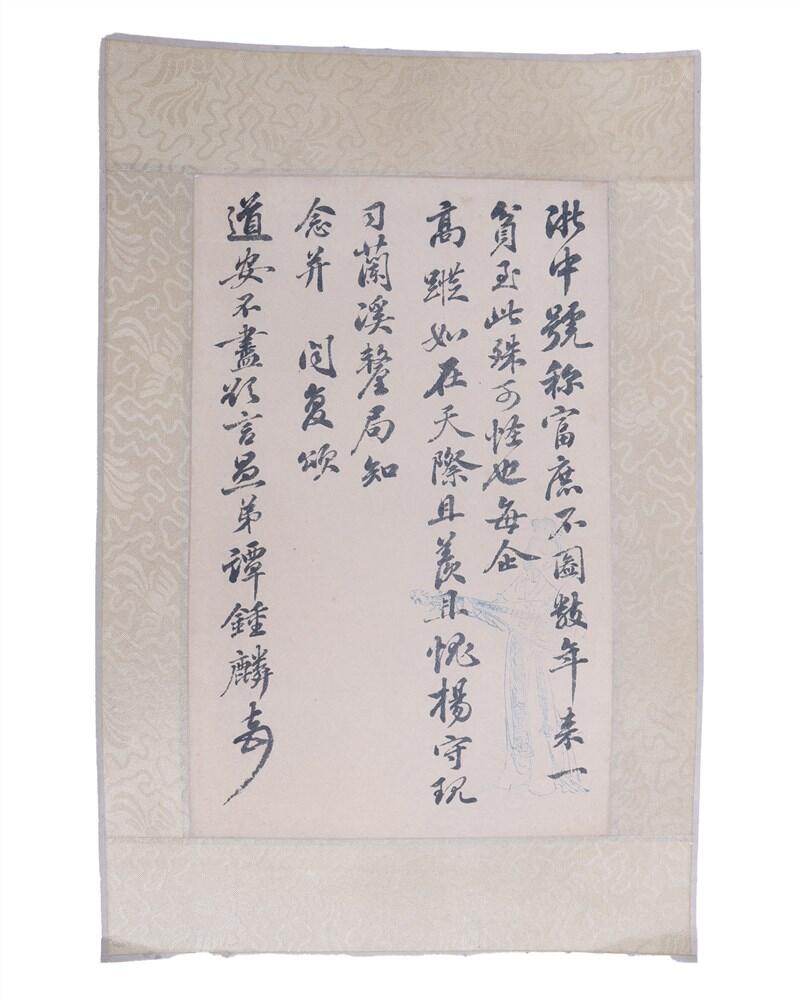 浙中號称富庶不圖數年来一
貧至此殊可怪也每企
高蹤如在天際且羨且愧楊守現
司蘭溪釐局知
念并聞复頌
道安不盡欲言愚弟譚鍾麟